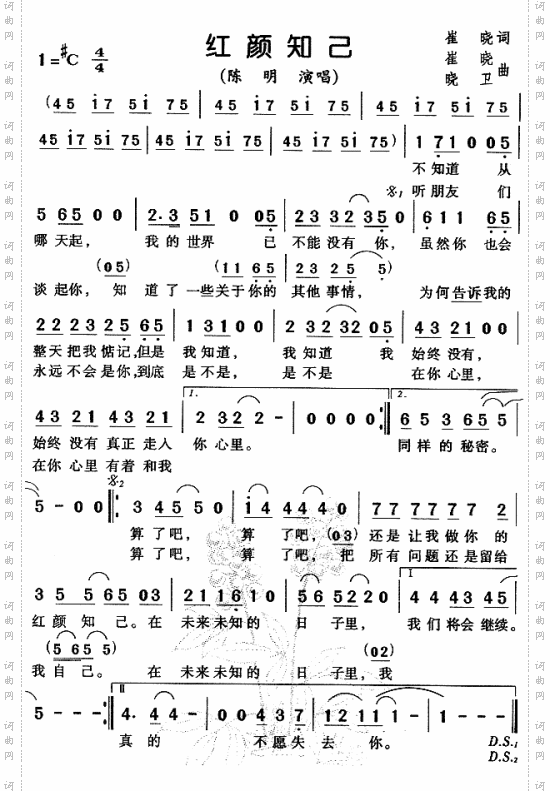 红颜知己
1=#C 4/4
(陈 明 演唱)
崔 晓词
崔 晓
晓 卫曲
(45 i7 5i 75 | 45 i7 5i 75 | 45 i7 5i 75
45 i7 5i 75 | 45 i7 5i 75 | 45 i7 5i 75) | 1 71 0 05 |
不知道 从
听朋友 们
5 65 0 0 | 2·3 51 0 05 | 23 32 35 0 | 6 11 65 |
哪天起, 我的世界 已 不能没有 你, 虽然你 也会
(05) (11 65) 23 25 5)
谈起你, 知道了一些关于你的 其他事情, 为何告诉我的
22 23 25 65 | 1 31 0 0 | 2 32 32 05 | 43 21 0 0 |
整天把我惦记,但是 我知道, 我知道 我 始终没有,
永远不会是你,到底 是不是, 是不是 在你心里,
43 21 43 21 | 2 32 2 - | 0 0 0 0 :‖ 65 3 65 5 |
1.
2.
始终没有真正走入 你心里。 同样的秘密。
在你心里有着和我
5 - 0 0 ‖: 3 45 0 0 | i4 44 40 | 77 77 77 2 |
算了吧, 算 了吧, (03) 还是让我做你 的
算了吧, 算 了吧, 把 所有问题还是留给
35 5 65 03 | 2 11 61 0 | 5 65 22 0 | 44 43 45 |
I
红颜知己。在 未来未知的 日子里, 我们将会继续。
(5 65 5) (02)
我自己。 在 未来未知的 日子里,我
II
5 - - - :‖ 4· 4 - - | 0 0 43 7 | 12 11 1 - | 1 - - - :‖
真的 不愿失去 你。
D.S.1
D.S.2
词曲网